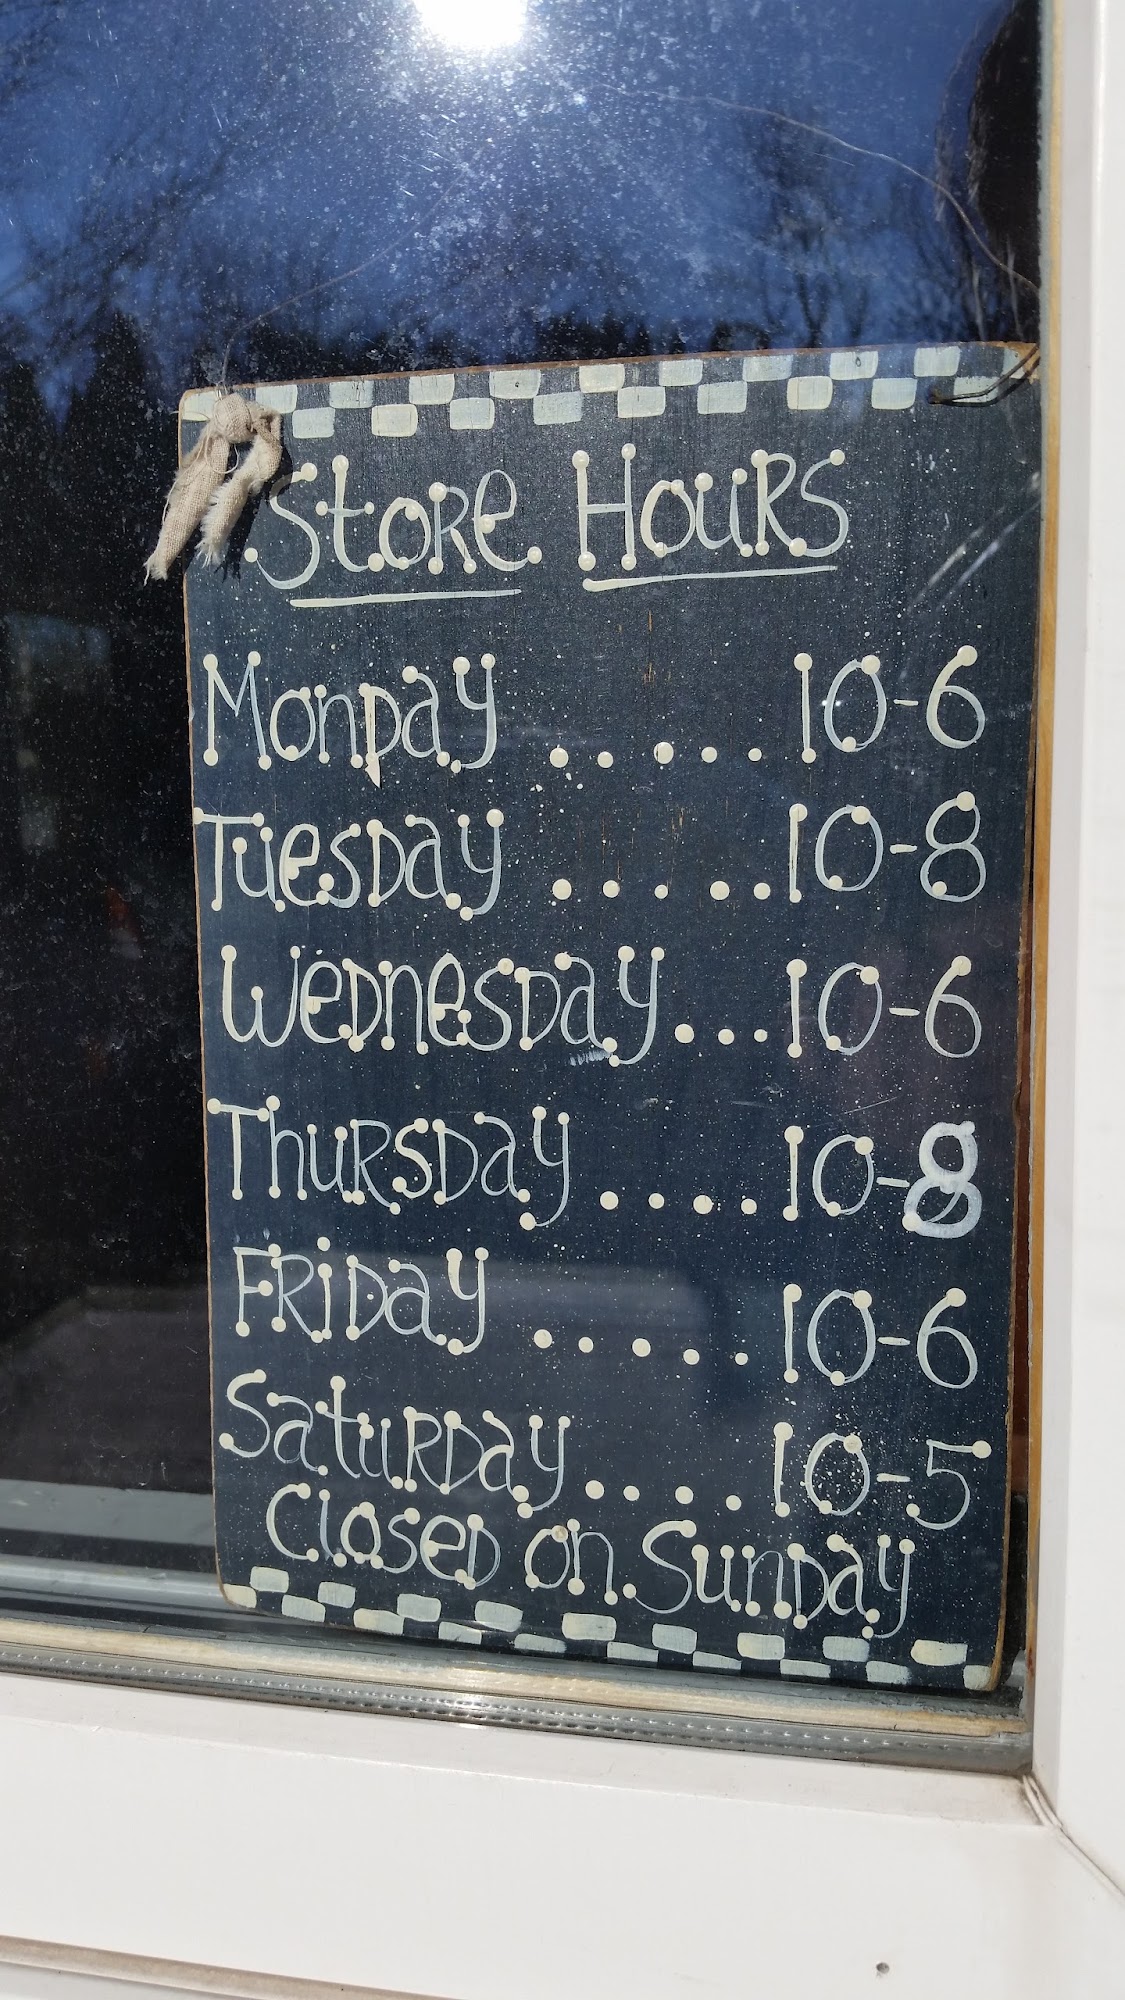 Store Hours
Monday ..... 10-6
Tuesday ..... 10-8
Wednesday ... 10-6
Thursday .... 10-8
Friday ..... 10-6
Saturday .... 10-5
Closed on Sunday